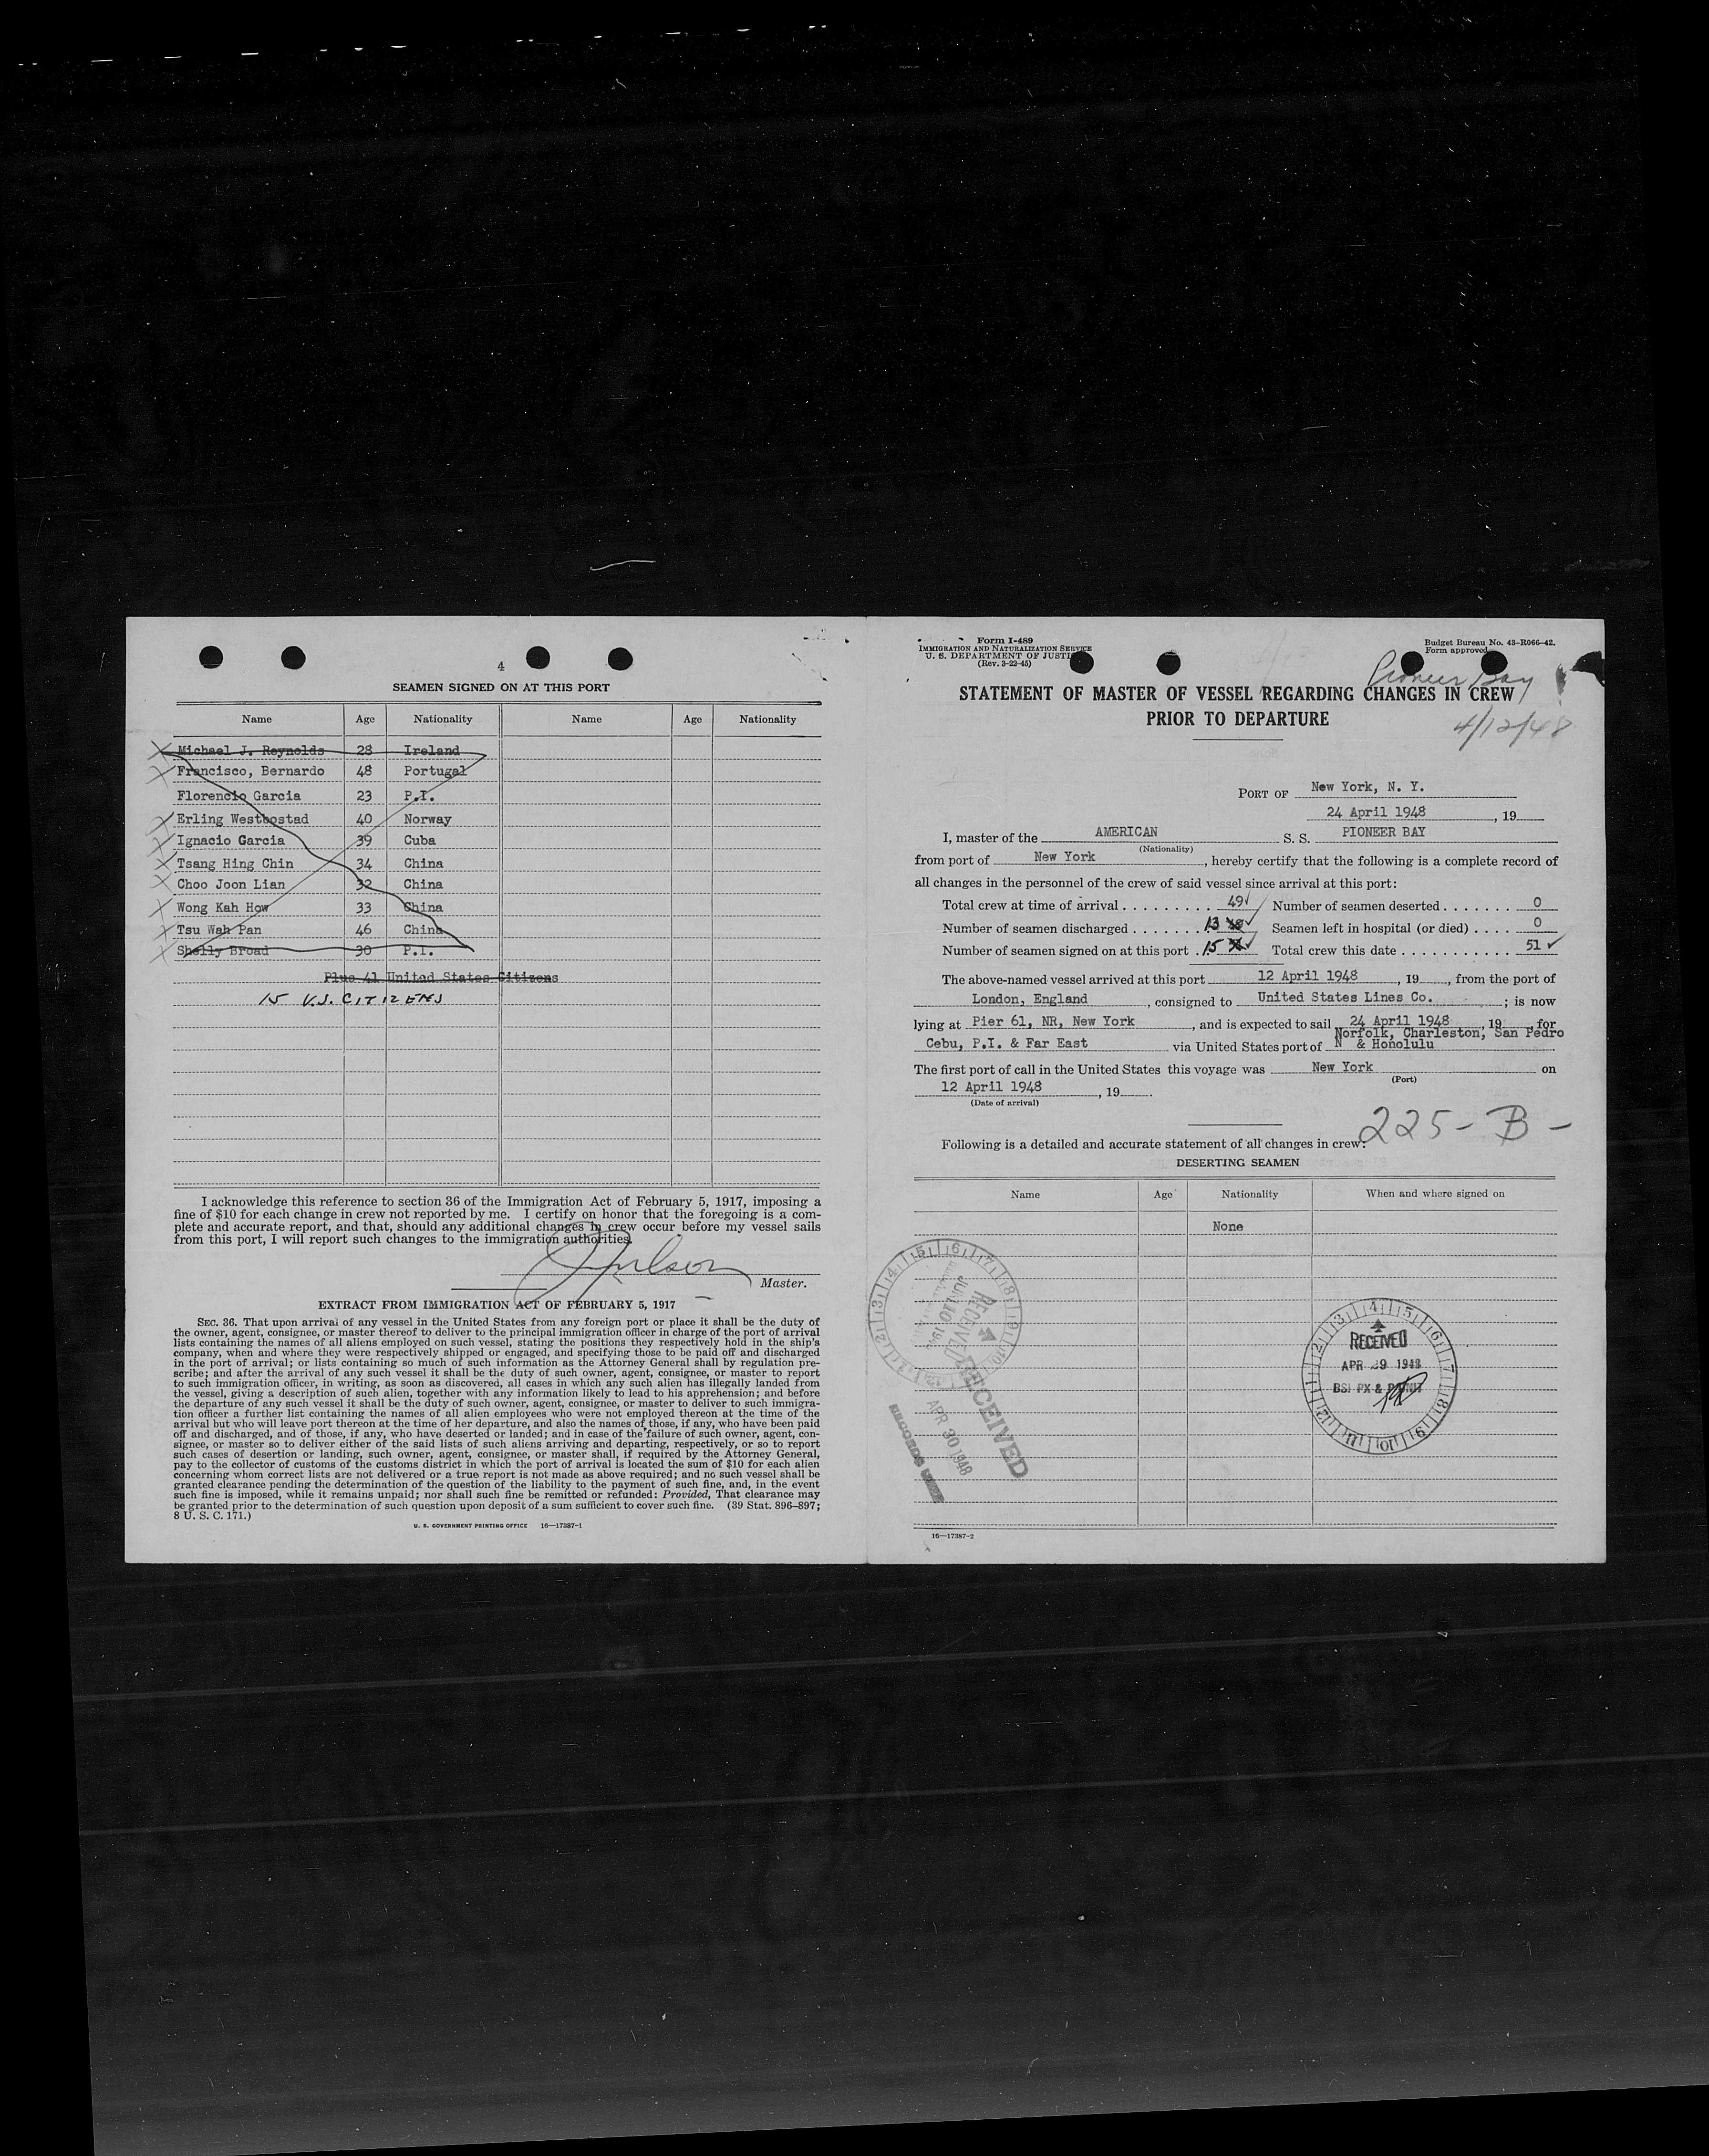 4
SEAMEN SIGNED ON AT THIS PORT
Name Age Nationality Name Age Nationality
Michael J. Reynolds 28 Ireland
Francisco, Bernardo 48 Portugal
Florencio Garcia 23 P.I.
Erling Westbostad 40 Norway
Ignacio Garcia 39 Cuba
Tsang Hing Chin 34 China
Choo Joon Lian 32 China
Wong Kah How 33 China
Tsu Wah Pan 46 China
Shelly Broad 30 P.I.
Plus 41 United States Citizens
15 U.S. CITIZENS
I acknowledge this reference to section 36 of the Immigration Act of February 5, 1917, imposing a
fine of $10 for each change in crew not reported by me. I certify on honor that the foregoing is a com-
plete and accurate report, and that, should any additional changes in crew occur before my vessel sails
from this port, I will report such changes to the immigration authorities.
Master.
EXTRACT FROM IMMIGRATION ACT OF FEBRUARY 5, 1917
SEC. 36. That upon arrival of any vessel in the United States from any foreign port or place it shall be the duty of
the owner, agent, consignee, or master thereof to deliver to the principal immigration officer in charge of the port of arrival
lists containing the names of all aliens employed on such vessel, stating the positions they respectively hold in the ship's
company, when and where they were respectively shipped or engaged, and specifying those to be paid off and discharged
in the port of arrival; or lists containing so much of such information as the Attorney General shall by regulation pre-
scribe; and after the arrival of any such vessel it shall be the duty of such owner, agent, consignee, or master to report
to such immigration officer, in writing, as soon as discovered, all cases in which any such alien has illegally landed from
the vessel, giving a description of such alien, together with any information likely to lead to his apprehension; and before
the departure of any such vessel it shall be the duty of such owner, agent, consignee, or master to deliver to such immigra-
tion officer a further list containing the names of all alien employees who were not employed thereon at the time of the
arrival but who will leave port thereon at the time of her departure, and also the names of those, if any, who have been paid
off and discharged, and of those, if any, who have deserted or landed; and in case of the failure of such owner, agent, con-
signee, or master so to deliver either of the said lists of such aliens arriving and departing, respectively, or so to report
such cases of desertion or landing, such owner, agent, consignee, or master shall, if required by the Attorney General,
pay to the collector of customs of the customs district in which the port of arrival is located the sum of $10 for each alien
concerning whom correct lists are not delivered or a true report is not made as above required; and no such vessel shall be
granted clearance pending the determination of the question of the liability to the payment of such fine, and, in the event
such fine is imposed, while it remains unpaid; nor shall such fine be remitted or refunded: Provided, That clearance may
be granted prior to the determination of such question upon deposit of a sum sufficient to cover such fine. (39 Stat. 896-897;
8 U. S. C. 171.)
U. S. GOVERNMENT PRINTING OFFICE 16—17387-1
Form I-489
IMMIGRATION AND NATURALIZATION SERVICE
U. S. DEPARTMENT OF JUSTICE
(Rev. 3-22-45)
Budget Bureau No. 43-R066-42.
Form approved
Pioneer Bay
STATEMENT OF MASTER OF VESSEL REGARDING CHANGES IN CREW
PRIOR TO DEPARTURE
4/12/48
PORT OF New York, N. Y.
24 April 1948, 19
I, master of the AMERICAN S. S. PIONEER BAY
(Nationality)
from port of New York, hereby certify that the following is a complete record of
all changes in the personnel of the crew of said vessel since arrival at this port:
Total crew at time of arrival 49 Number of seamen deserted 0
Number of seamen discharged 13 Seamen left in hospital (or died) 0
Number of seamen signed on at this port 15 Total crew this date 51
The above-named vessel arrived at this port 12 April 1948, 19, from the port of
London, England, consigned to United States Lines Co.; is now
lying at Pier 61, NR, New York, and is expected to sail 24 April 1948, 19 for
Norfolk, Charleston, San Pedro
Cebu, P.I. & Far East via United States port of N & Honolulu
The first port of call in the United States this voyage was New York on
(Port)
12 April 1948, 19.
(Date of arrival)
225-B-
Following is a detailed and accurate statement of all changes in crew:
DESERTING SEAMEN
Name Age Nationality When and where signed on
None
RECEIVED
JUN 10
RECEIVED
APR 30 1948
RECORDS
RECEIVED
APR 29 1948
BSI PX &
16—17387-2